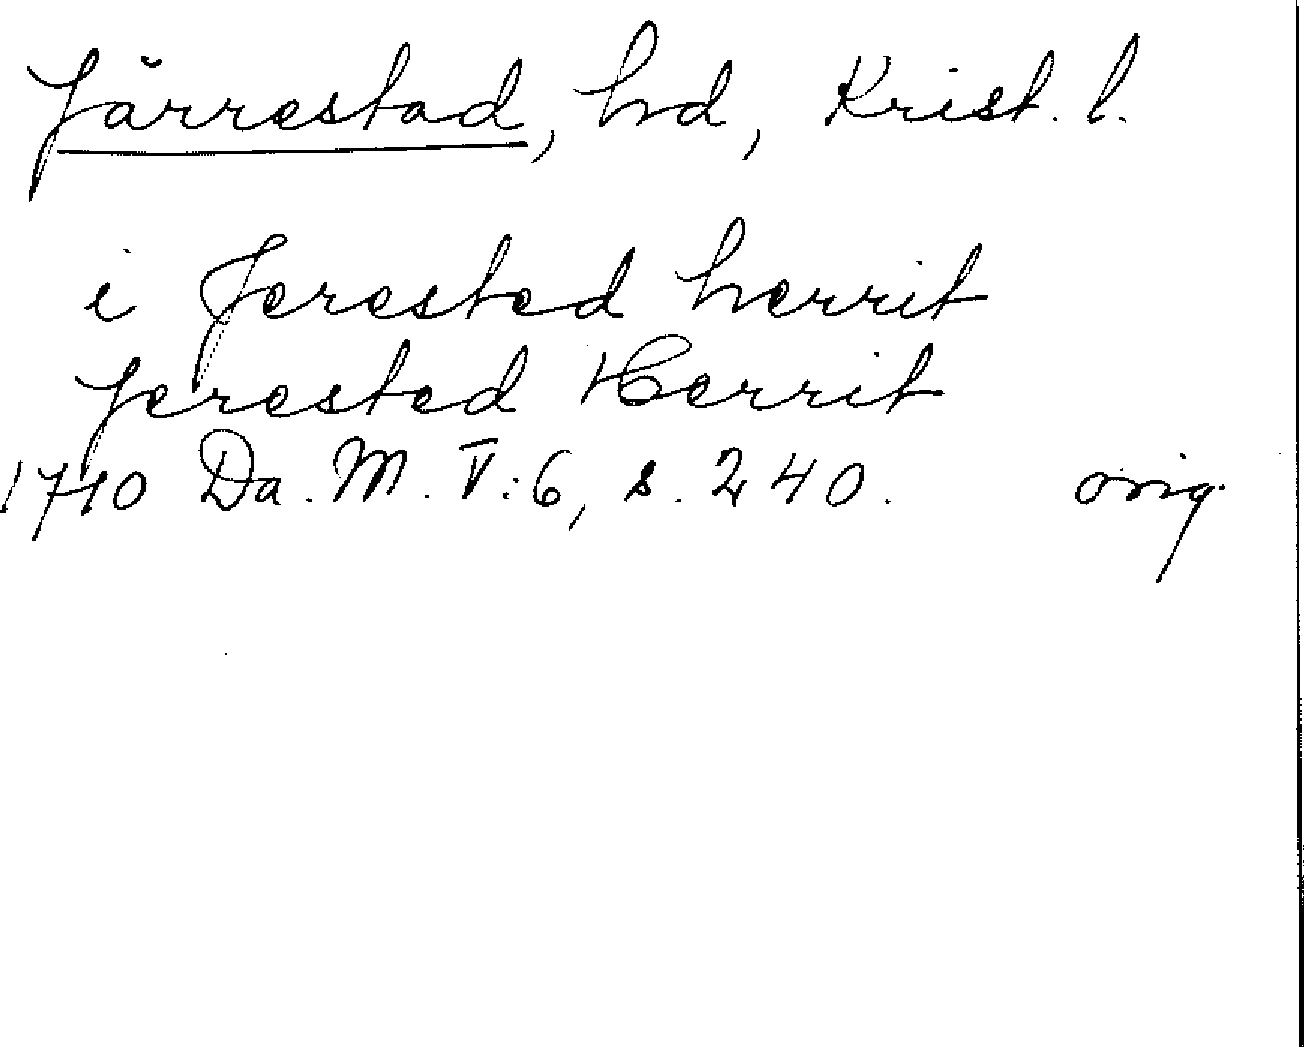 Järrestad, hd, Krist. l.
i Jerested herrit
Jerested Herrit
1710 Da. M. V:6, s. 240. orig.